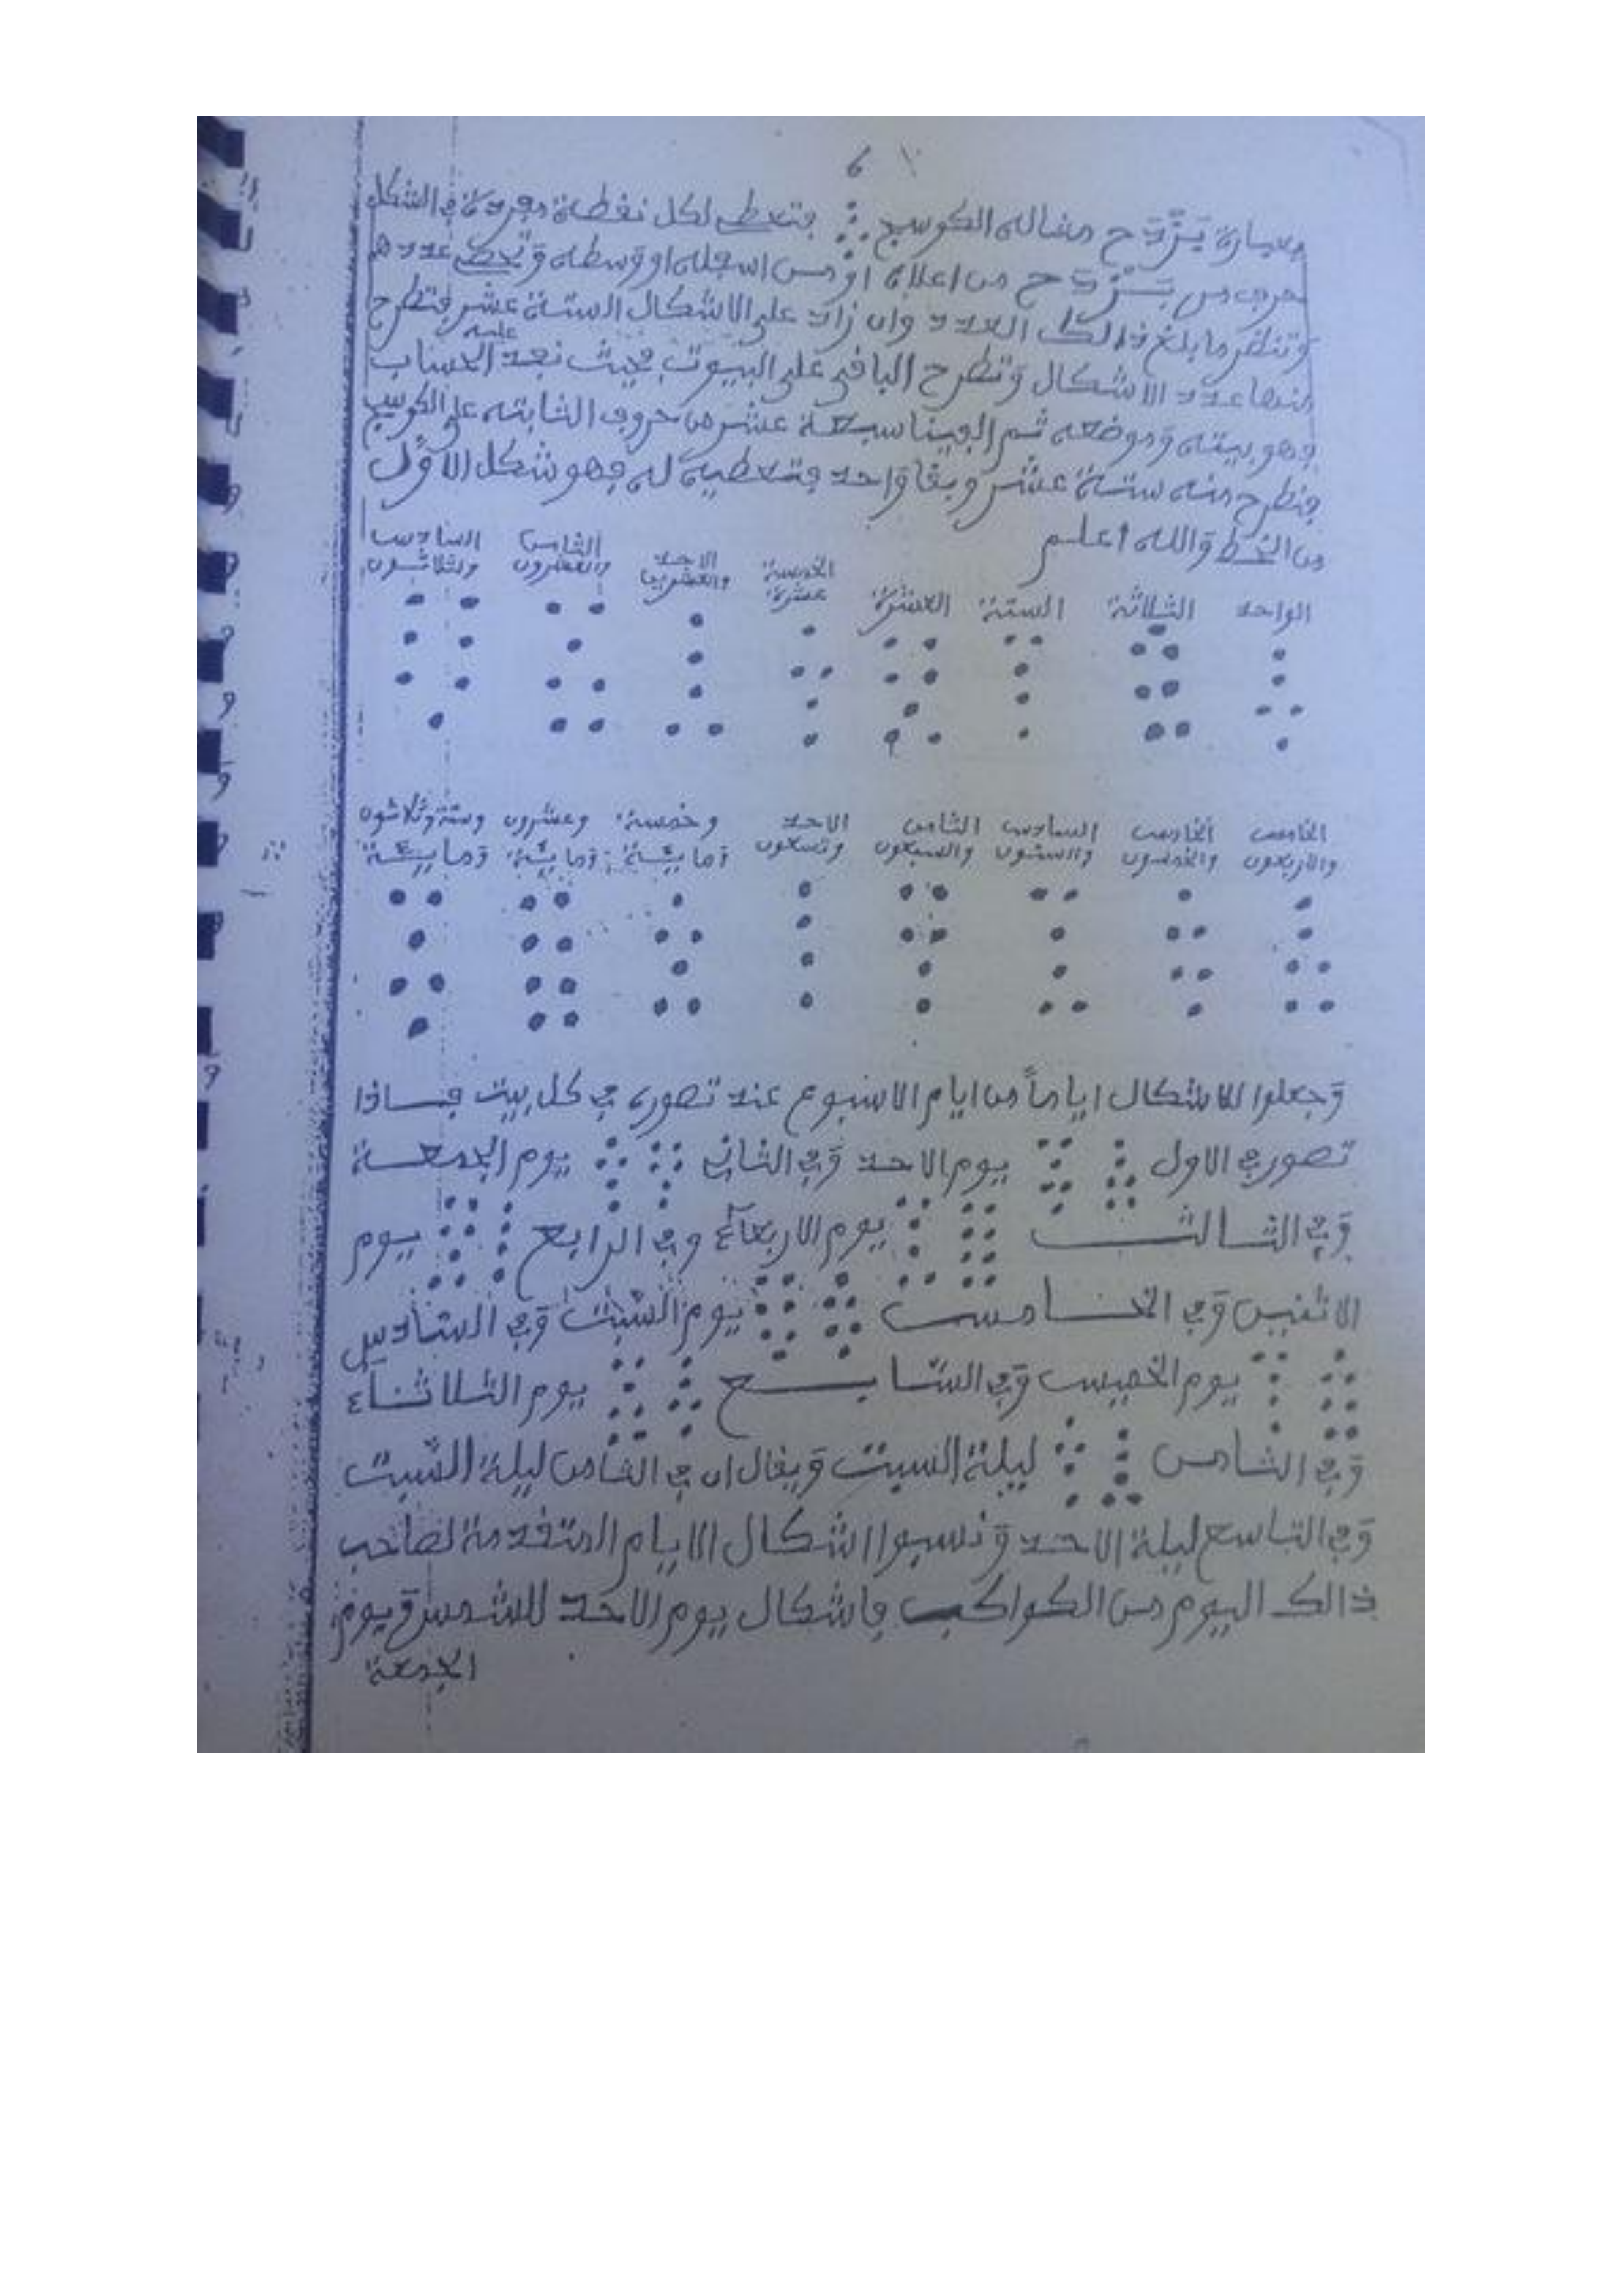 وعبارة يَزْدَح مثاله الكوسج فتعطي لكل نقطة مفردة في الشكل
حرف من يَزْدَح من اعلاه او من اسفله او وسطه وَتحط عددها
وَتنظر ما بلغ ذالك العدد وان زاد على الاشكال الستة عشر فتطرح
منها عدد الاشكال وَتطرح الباقي على البيوت فحيث نجد عليه الحساب
فهو بيته وَموضعه ثم الفينا سبعة عشر من حروف الثابتة على الكوسج
فنطرح منه ستة عشر وبقا وَاحد فتعطيه له فهو شكل الاوّل
من الخط وَالله اعلم
الواحد الثلاثة الستة العشرة الخمسة عشرة الاحد والعشرين الثامن والعشرون السادس والثلاثون
الخامس والاربعون الخامس والخمسون السادس والستون الثامن والسبعون الاحد وتسعون وخمسة وَماية وعشرون وَماية وستة وثلاثون وَماية
وَجعلوا للاشكال اياماً من ايام الاسبوع عند تصوره في كل بيت فاذا
تصور في الاول يوم الاحد وَفي الثاني يوم الجمعة
وَفي الثالث يوم الاربعاء وفي الرابع يوم
الاثنين وَفي الخامس يوم السبت وَفي السادس
يوم الخميس وَفي السابع يوم الثلاثاء
وَفي الثامن ليلة السبت وَيقال ان في الثامن ليلة السبت
وَفي التاسع ليلة الاحد وَنسبوا اشكال الايام المتقدمة لصاحب
ذالك اليوم من الكواكب فاشكال يوم الاحد للشمس وَيوم
الجمعة